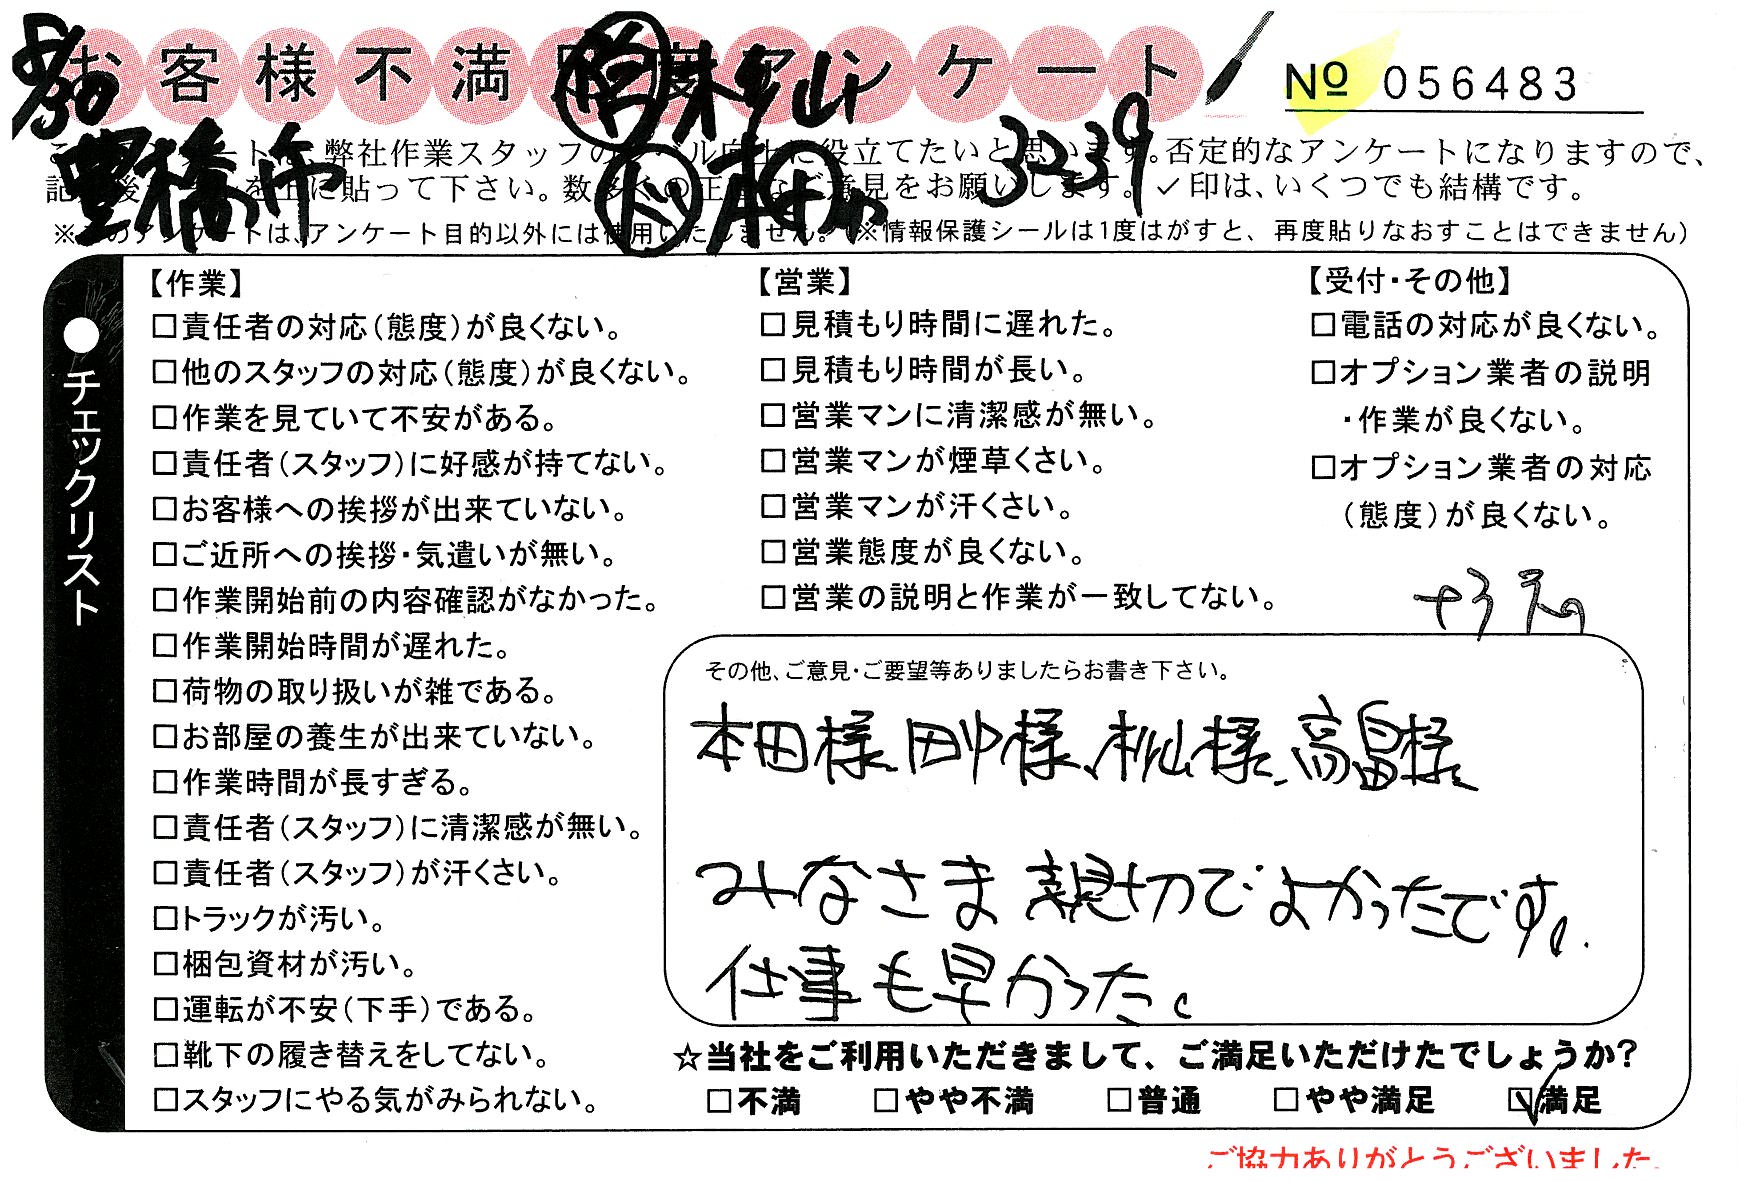 お客様不満足度アンケート
№ 056483
8/30 営 杉山
豊橋市 本田 3239
弊社作業スタッフの 役立てたいと思います。否定的なアンケートになりますので、
に貼って下さい。数多くの ご意見をお願いします。✓印は、いくつでも結構です。
※このアンケートは、アンケート目的以外には使用いたしません。(※情報保護シールは1度はがすと、再度貼りなおすことはできません)
●チェックリスト
【作業】
□責任者の対応(態度)が良くない。
□他のスタッフの対応(態度)が良くない。
□作業を見ていて不安がある。
□責任者(スタッフ)に好感が持てない。
□お客様への挨拶が出来ていない。
□ご近所への挨拶・気遣いが無い。
□作業開始前の内容確認がなかった。
□作業開始時間が遅れた。
□荷物の取り扱いが雑である。
□お部屋の養生が出来ていない。
□作業時間が長すぎる。
□責任者(スタッフ)に清潔感が無い。
□責任者(スタッフ)が汗くさい。
□トラックが汚い。
□梱包資材が汚い。
□運転が不安(下手)である。
□靴下の履き替えをしてない。
□スタッフにやる気がみられない。
【営業】
□見積もり時間に遅れた。
□見積もり時間が長い。
□営業マンに清潔感が無い。
□営業マンが煙草くさい。
□営業マンが汗くさい。
□営業態度が良くない。
□営業の説明と作業が一致してない。
【受付・その他】
□電話の対応が良くない。
□オプション業者の説明
・作業が良くない。
□オプション業者の対応
(態度)が良くない。
その他、ご意見・ご要望等ありましたらお書き下さい。
本田様、田中様、杉山様、高畠様、
みなさま親切でよかったです。
仕事も早かった。
☆当社をご利用いただきまして、ご満足いただけたでしょうか?
□不満 □やや不満 □普通 □やや満足 ☑満足
ご協力ありがとうございました。